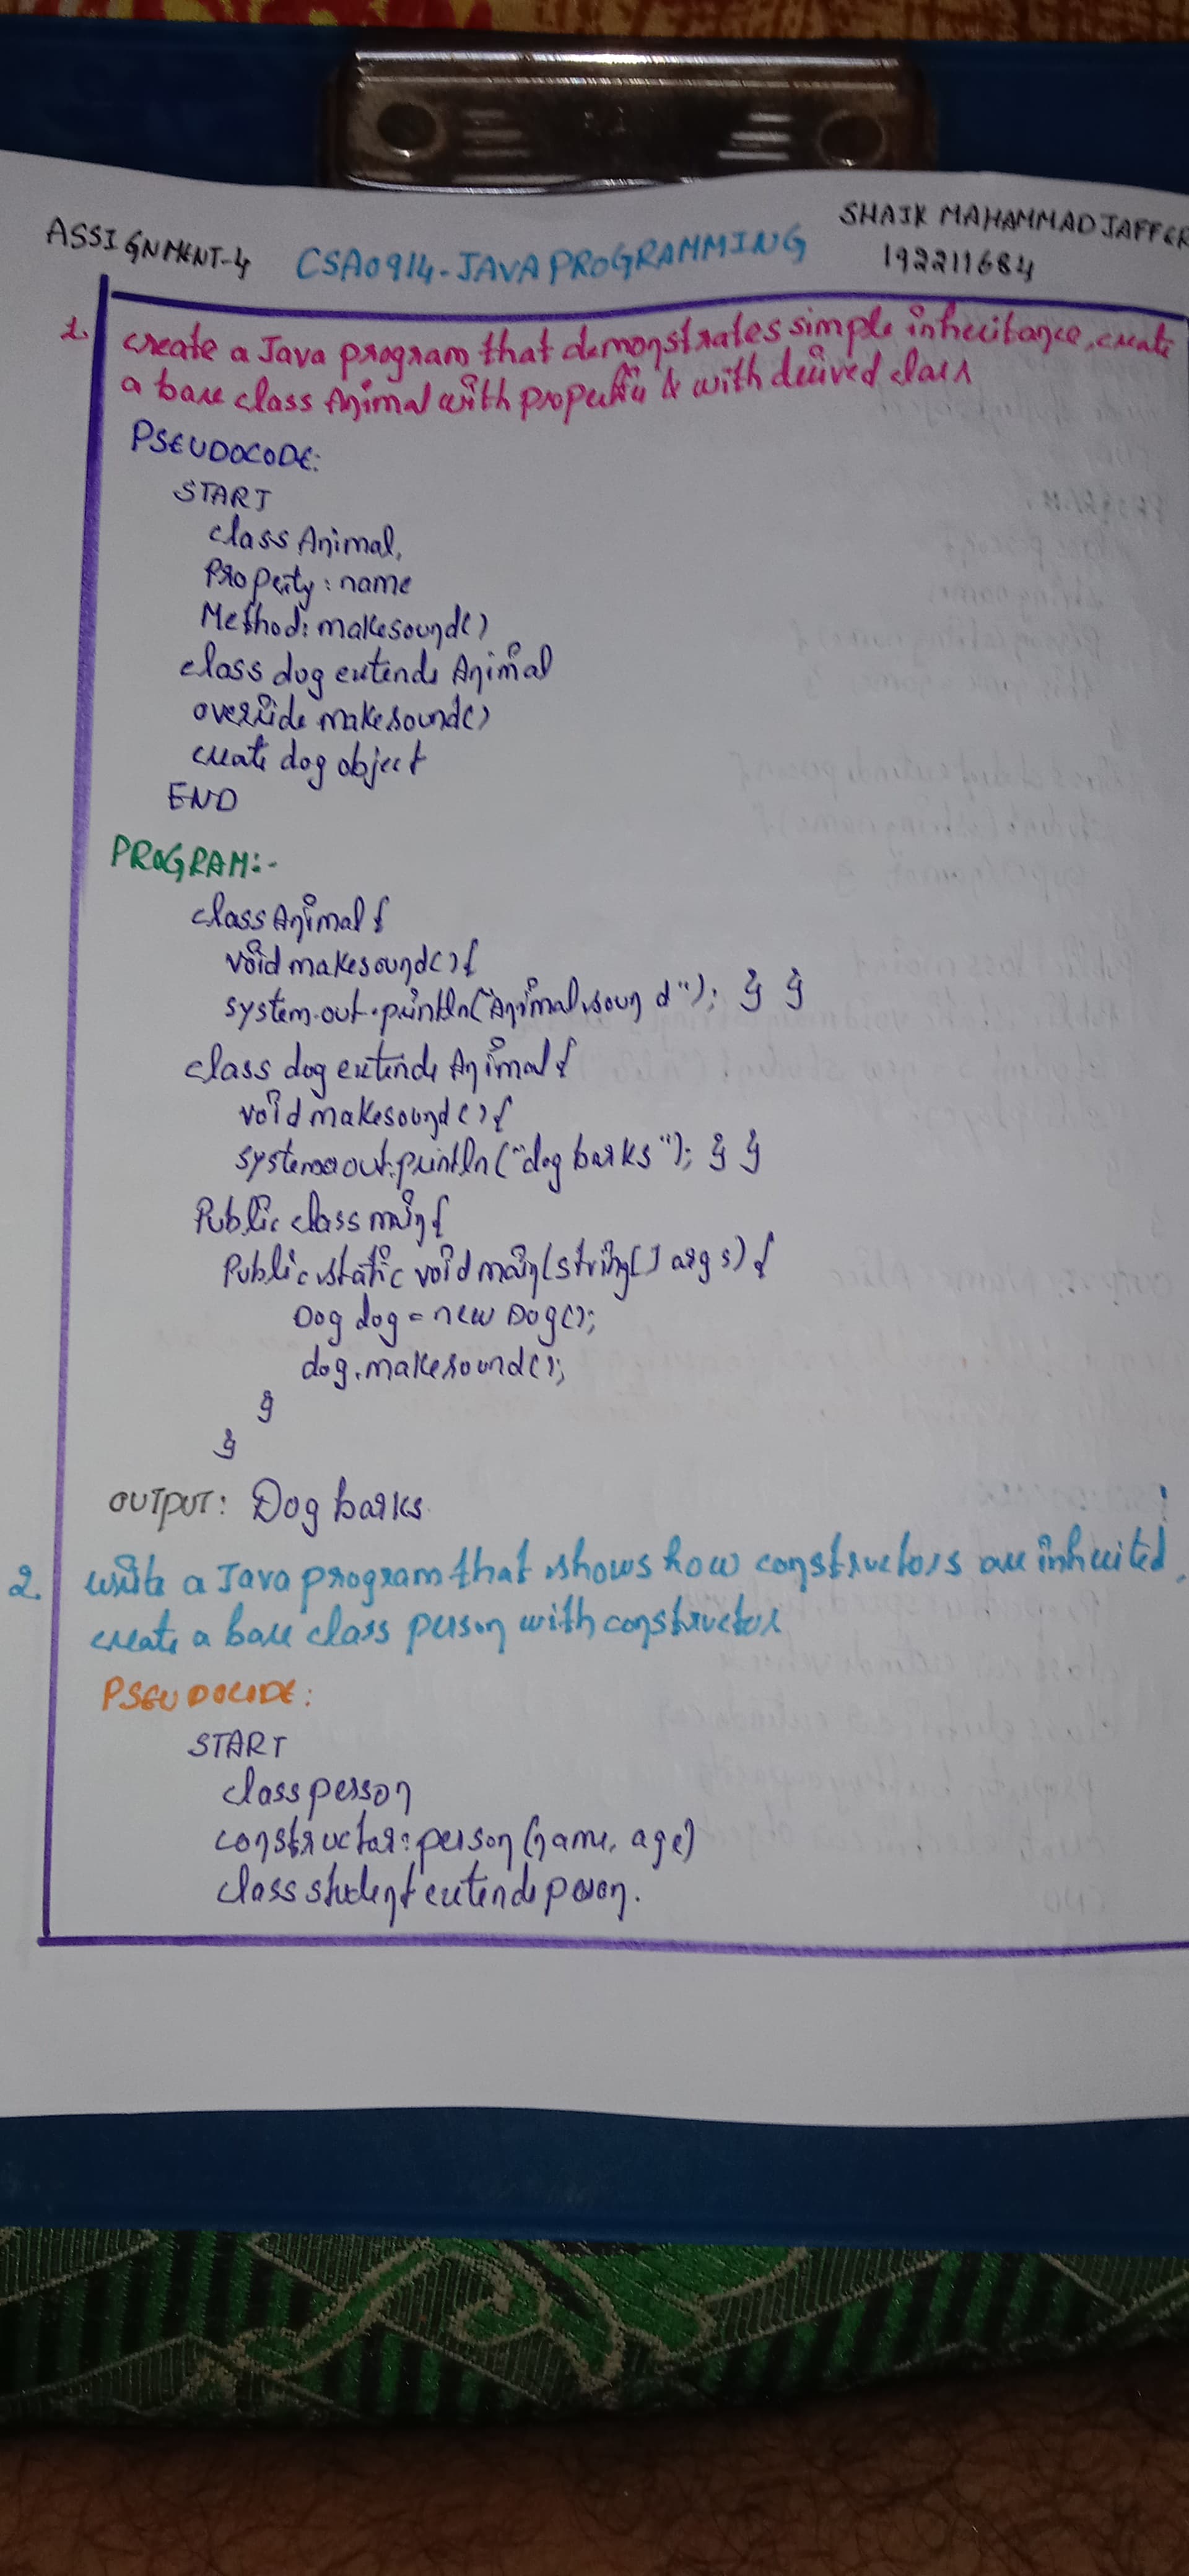 ASSIGNMENT-4 CSA0914-JAVA PROGRAMMING SHAIK MAHAMMAD JAFFER
192211684
1. create a Java program that demonstrates simple inheritance, create
a base class Animal with properties & with derived class
PSEUDOCODE:
START
class Animal,
Property: name
Method: makesound()
class dog extends Animal
override makesound()
create dog object
END
PROGRAM:-
class Animal {
void makesound() {
system.out.println("Animal sound"); } }
class dog extends Animal {
void makesound() {
system.out.println("dog barks"); } }
Public class main {
Public static void main(string[] args) {
Dog dog = new Dog();
dog.makesound();
}
}
OUTPUT: Dog barks
2. write a Java program that shows how constructors are inherited,
create a base class person with constructor
PSEUDOCIDE:
START
class person
constructor: person(name, age)
class student extends person.